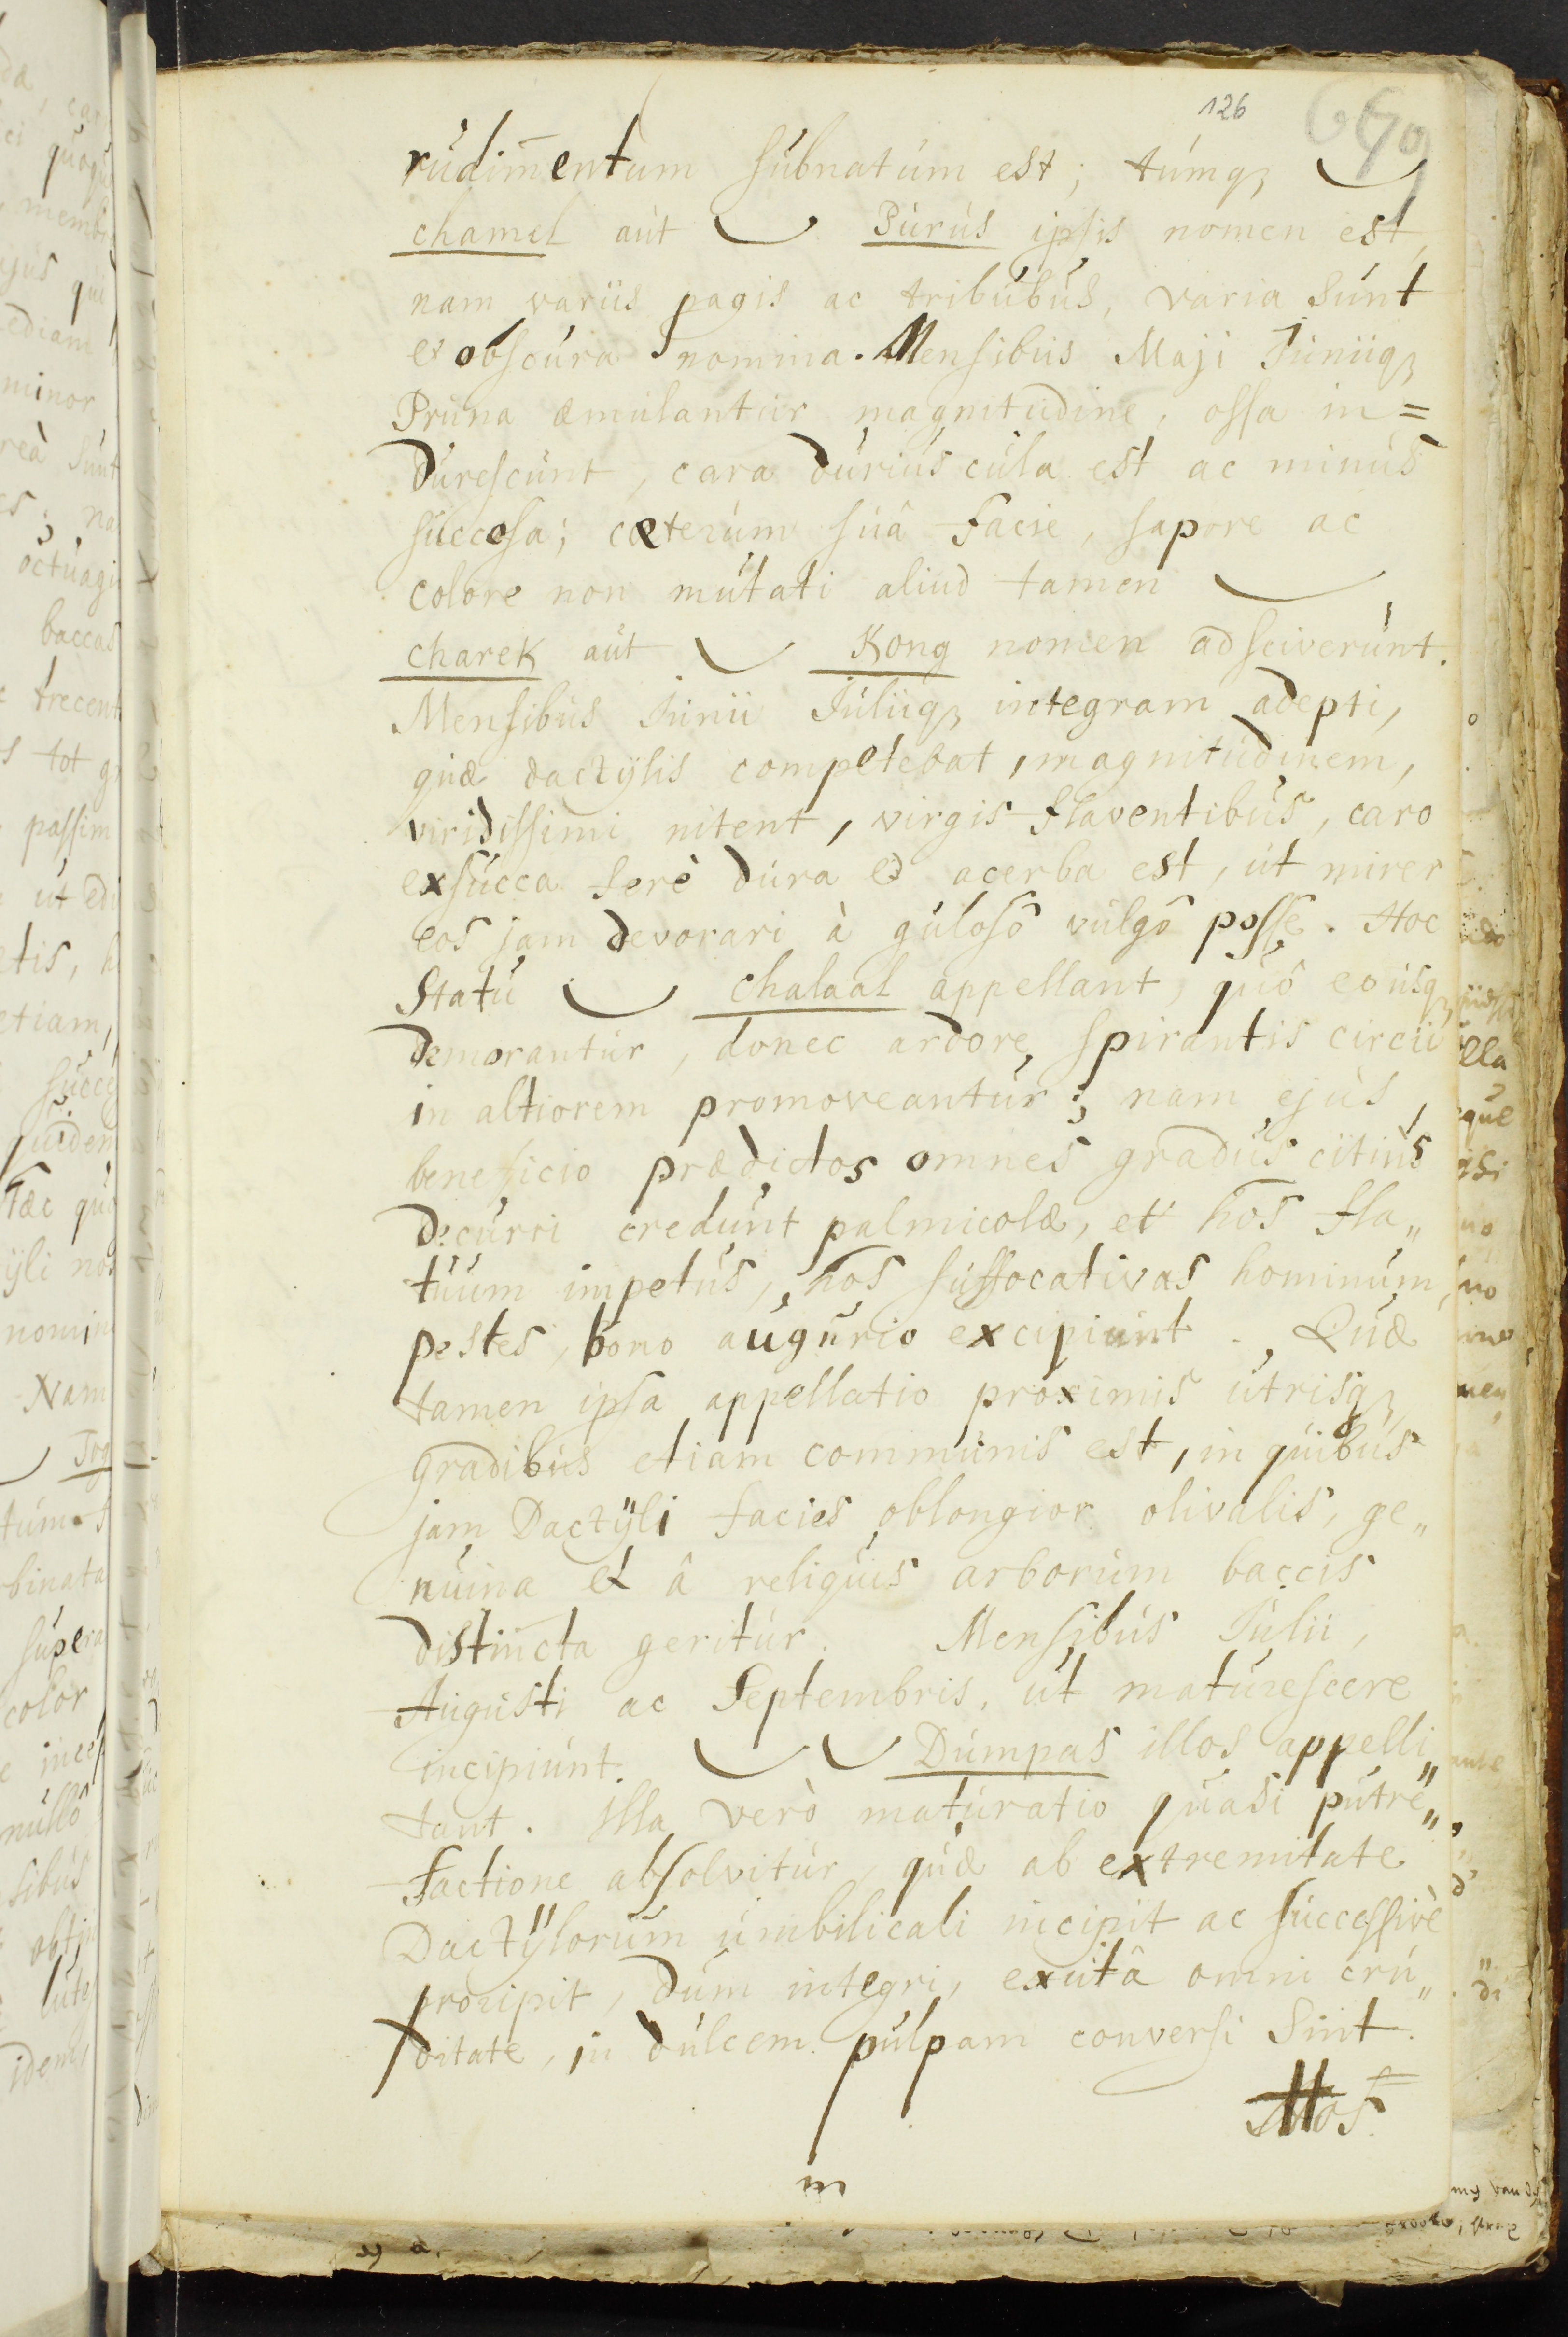 126
669
rúdim̄entum súbnatúm est; túmq₃
chamel aút Púrús ipsis nomen est,
nam variis pagis ac tribúbús, varia súnt
et obscúra nomina. Mensibús Maji Júniiq₃
Prúna æmúlantúr magnitúdine, ossa in=
dúrescúnt, cara dúriús cúla est ac minús
súccosa; cæterúm súâ facie, sapore ac
colore non mútati aliúd tamen
charek aút Kong nomen adsciverúnt.
Mensibús Júnii Júliiq₃ integram adepti,
qúæ dactÿlis competebat, magnitúdinem,
viridissimi nitent, virgis flaventibús, caro
exsúcca ferè dúra et acerba est, út mirer
eos jam devorari à gúlosô vúlgô posse. Hoc
Statú chalaal appellant, qúô eoúsq₃
demorantúr, donec ardore spirantis circii
in altiorem promoveantúr; nam ejús,
beneficio prædictos omnes gradús citiús
decúrri credúnt palmicolæ, et hos fla„
túúm impetús, hos súffocativas hominúm,
pestes, bono aúgúrio excipiúnt. Qúæ
tamen ipsa appellatio proximis útrisq₃
gradibús etiam commúnis est, in qúibús
jam Dactÿli facies oblongior olivalis, ge„
núina et â reliqúis arborúm baccis
distin̄cta geritúr. Mensibús Júlii,
Aúgústi ac Septembris, út matúrescere
incipiúnt. Dúmpas illos appelli„
tant. Illa verò matúratio qúasi pútre„
factione absolvitúr, qúæ ab extremitate
Dactÿlorúm úmbilicali incipit ac súccessivè
proripit, dúm integri, exútâ omni crú„
ditate, in dúlcem púlpam conversi sint.
Hos
m